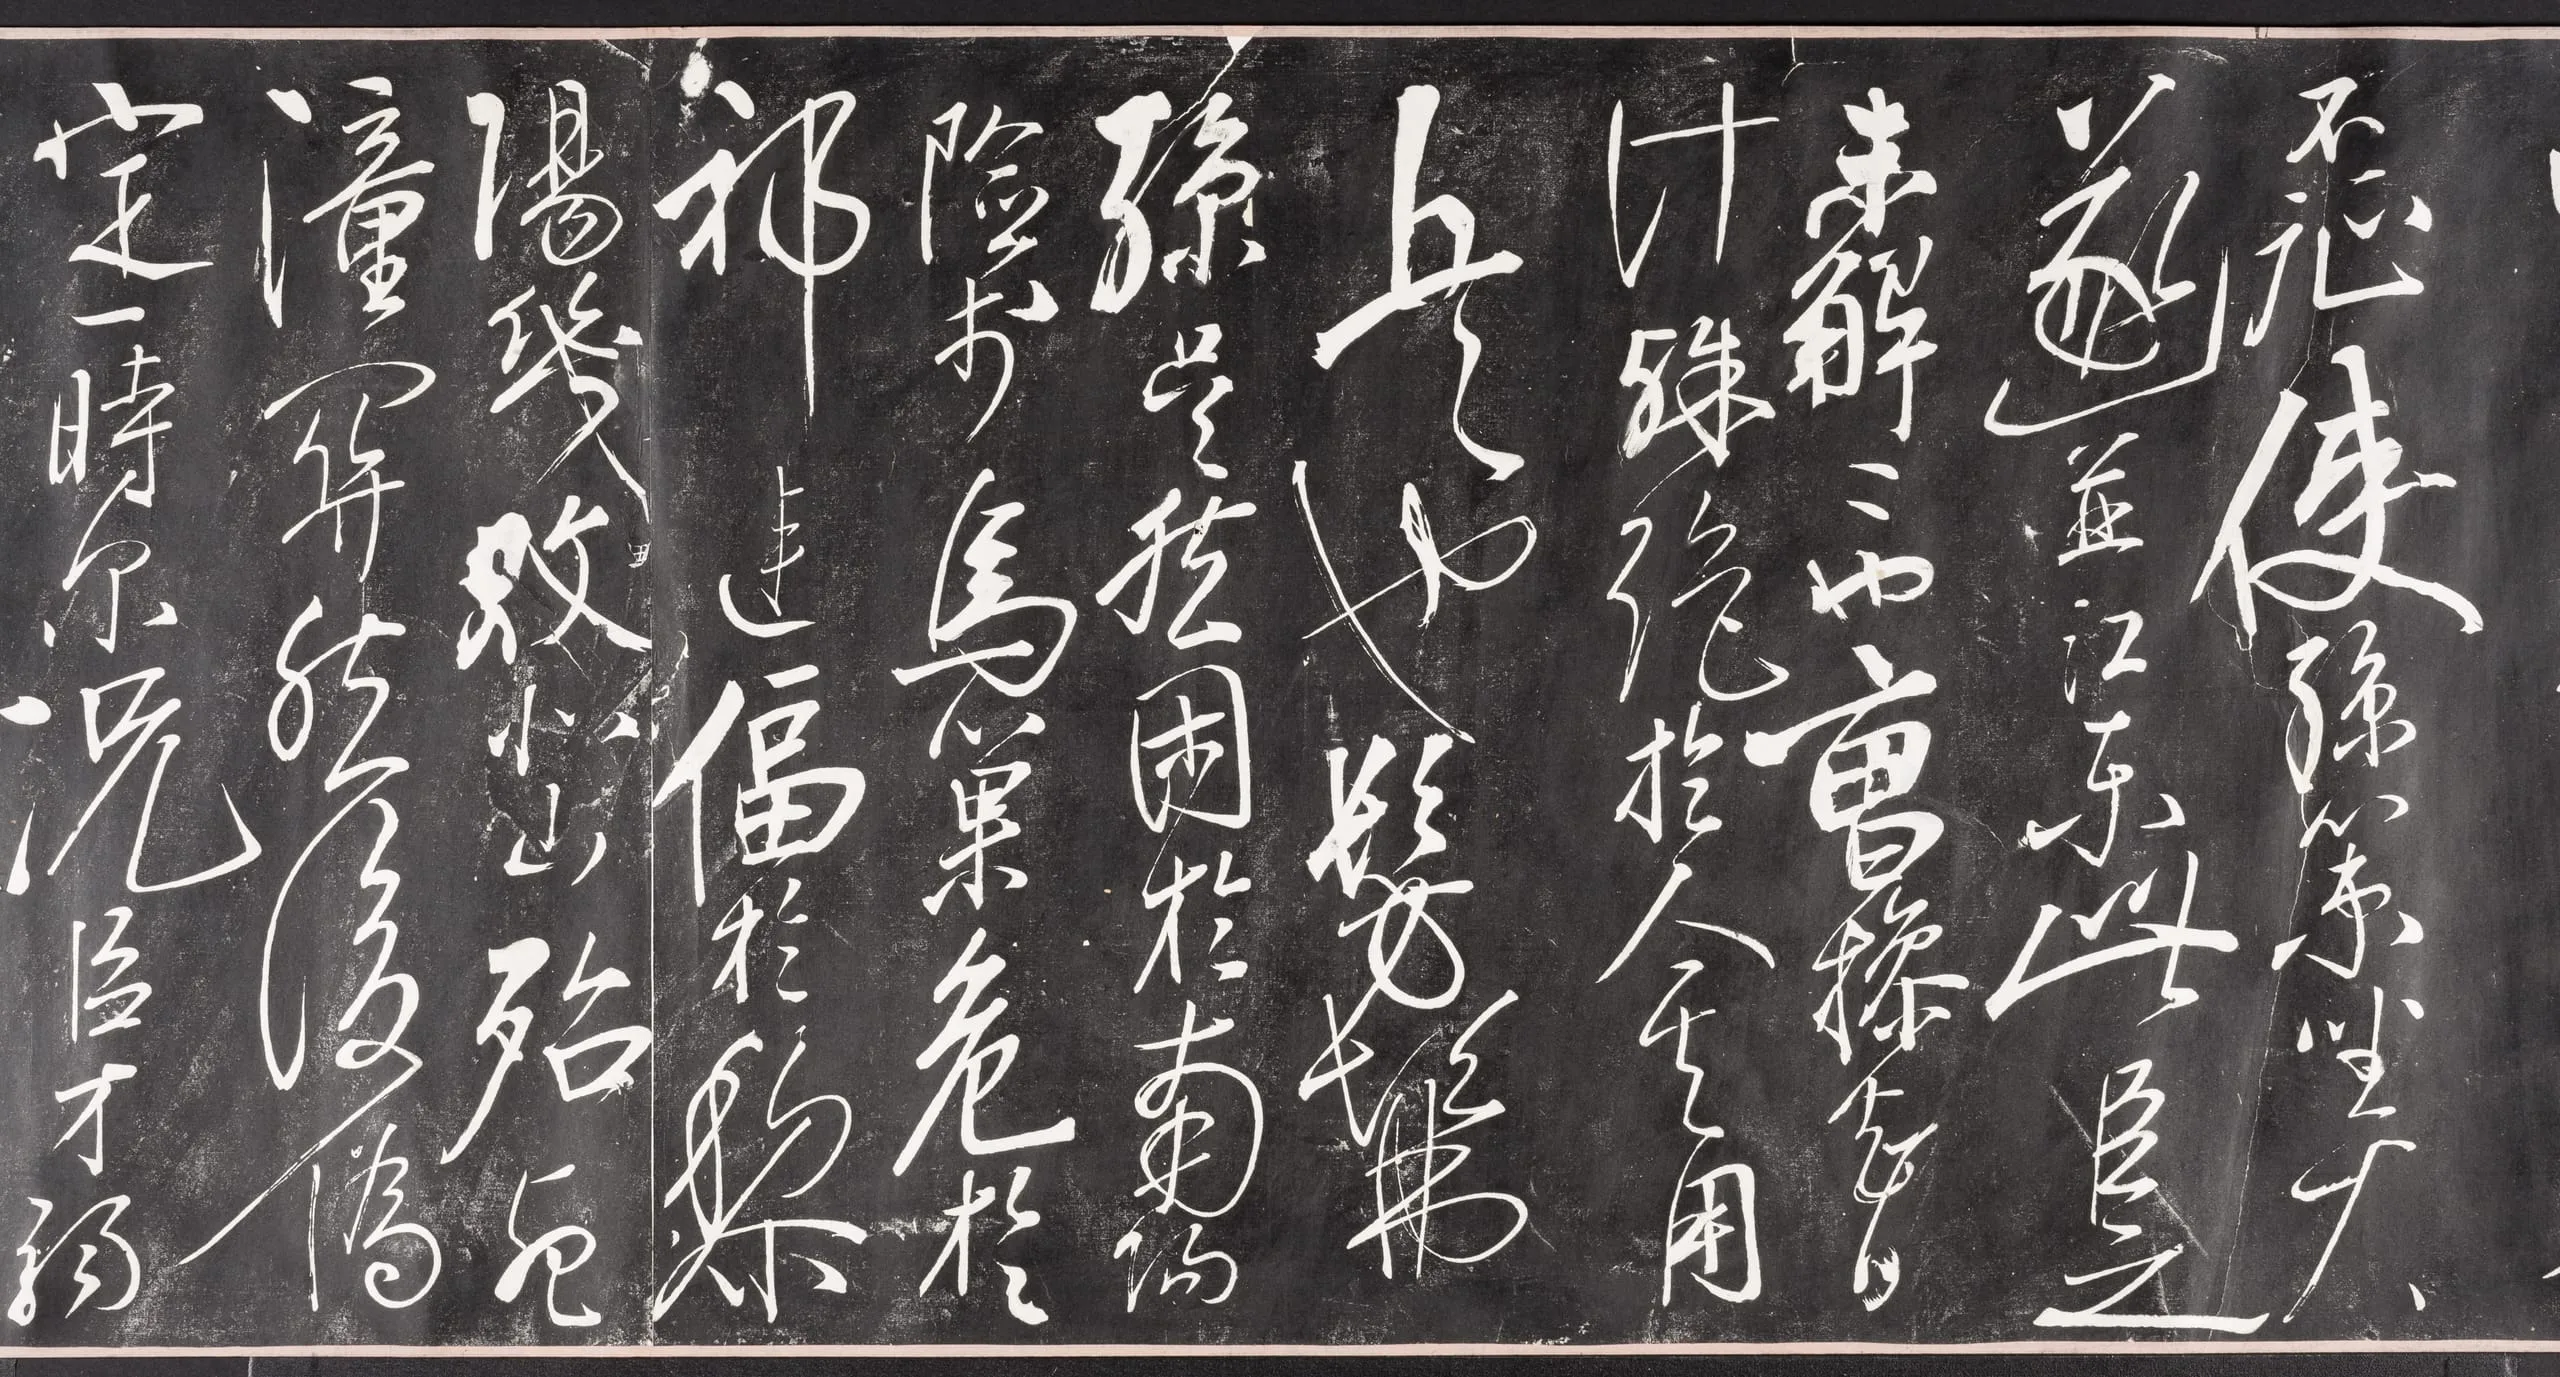 不征使孫策坐大
遂並江東此臣之
未解二也曹操智
計殊絕於人其用
兵也髣髴
孫吳然困於南陽
險於烏巢危於
祁連偪於黎
陽幾敗北山殆死
潼關然後偽
定一時尔況臣才弱